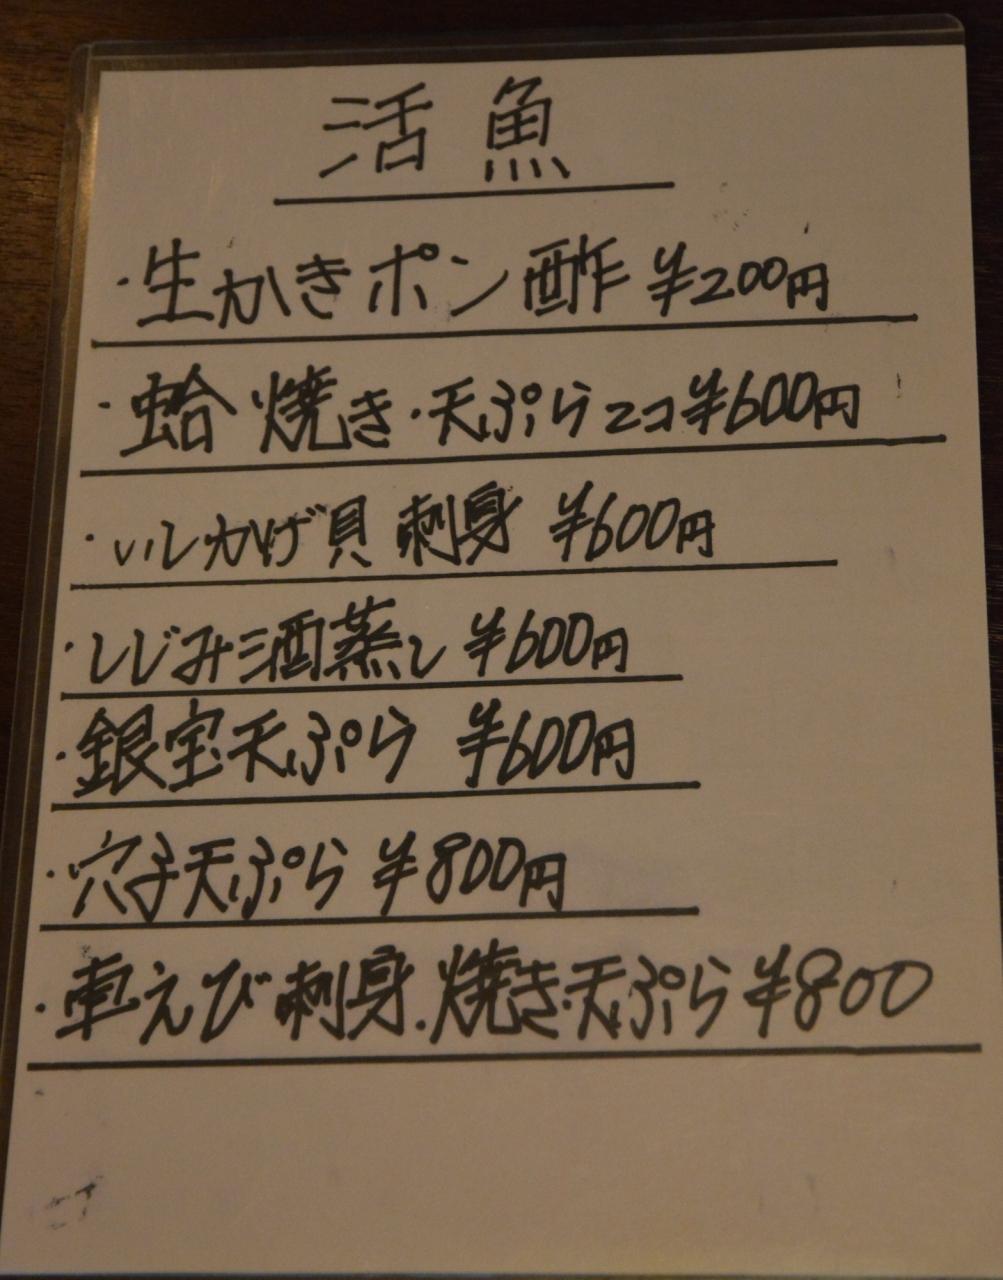 活魚
・生かきポン酢 ¥200円
・蛤焼き・天ぷら2コ¥600円
・いしかげ貝 刺身 ¥600円
・しじみ酒蒸し ¥600円
・銀宝天ぷら ¥600円
・穴子天ぷら ¥800円
・車えび刺身.焼き・天ぷら¥800